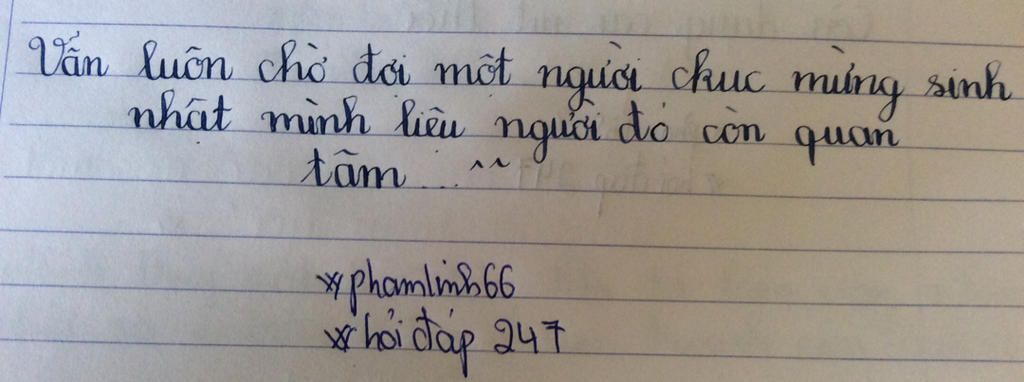 Vẫn luôn chờ đợi một người chuc mừng sinh
nhật mình liệu người đó còn quan
tâm ... ^^
** phamlinh66
** hỏi đáp 247